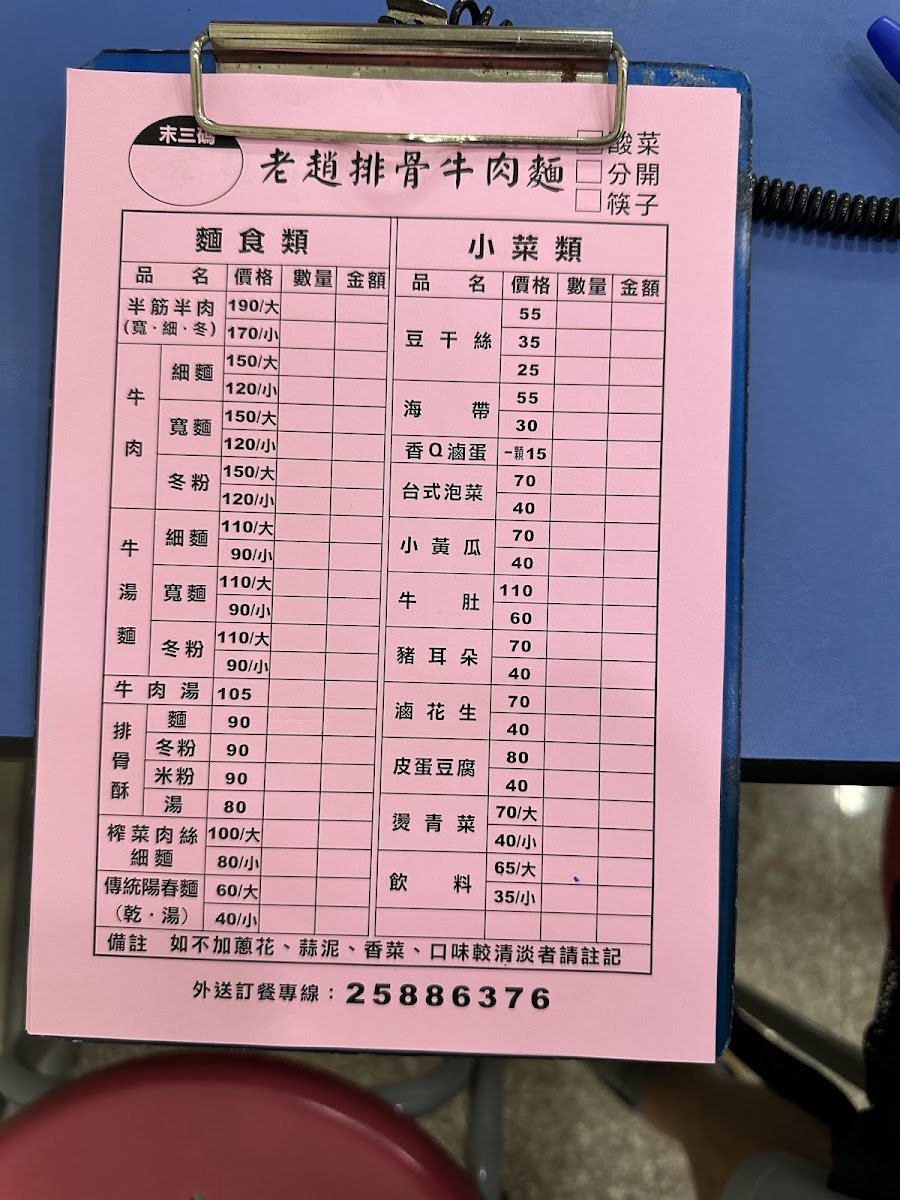 末三碼
老趙排骨牛肉麵
□酸菜
□分開
□筷子
麵食類
品名 價格 數量 金額
半筋半肉 190/大
(寬·細·冬) 170/小
牛肉 細麵 150/大
120/小
寬麵 150/大
120/小
冬粉 150/大
120/小
牛湯麵 細麵 110/大
90/小
寬麵 110/大
90/小
冬粉 110/大
90/小
牛肉湯 105
排骨酥 麵 90
冬粉 90
米粉 90
湯 80
榨菜肉絲 100/大
細麵 80/小
傳統陽春麵 60/大
(乾·湯) 40/小
小菜類
品名 價格 數量 金額
豆干絲 55
35
25
海帶 55
30
香Q滷蛋 一顆15
台式泡菜 70
40
小黃瓜 70
40
牛肚 110
60
豬耳朵 70
40
滷花生 70
40
皮蛋豆腐 80
40
燙青菜 70/大
40/小
飲料 65/大
35/小
備註 如不加蔥花、蒜泥、香菜、口味較清淡者請註記
外送訂餐專線：25886376